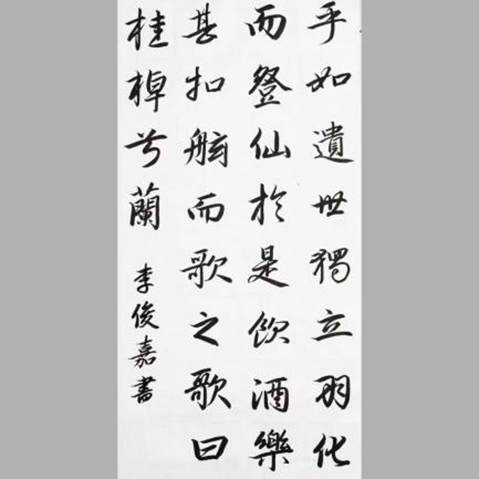 乎如遺世獨立羽化
而登仙於是飲酒樂
甚扣舷而歌之歌曰
桂棹兮蘭
李俊嘉書